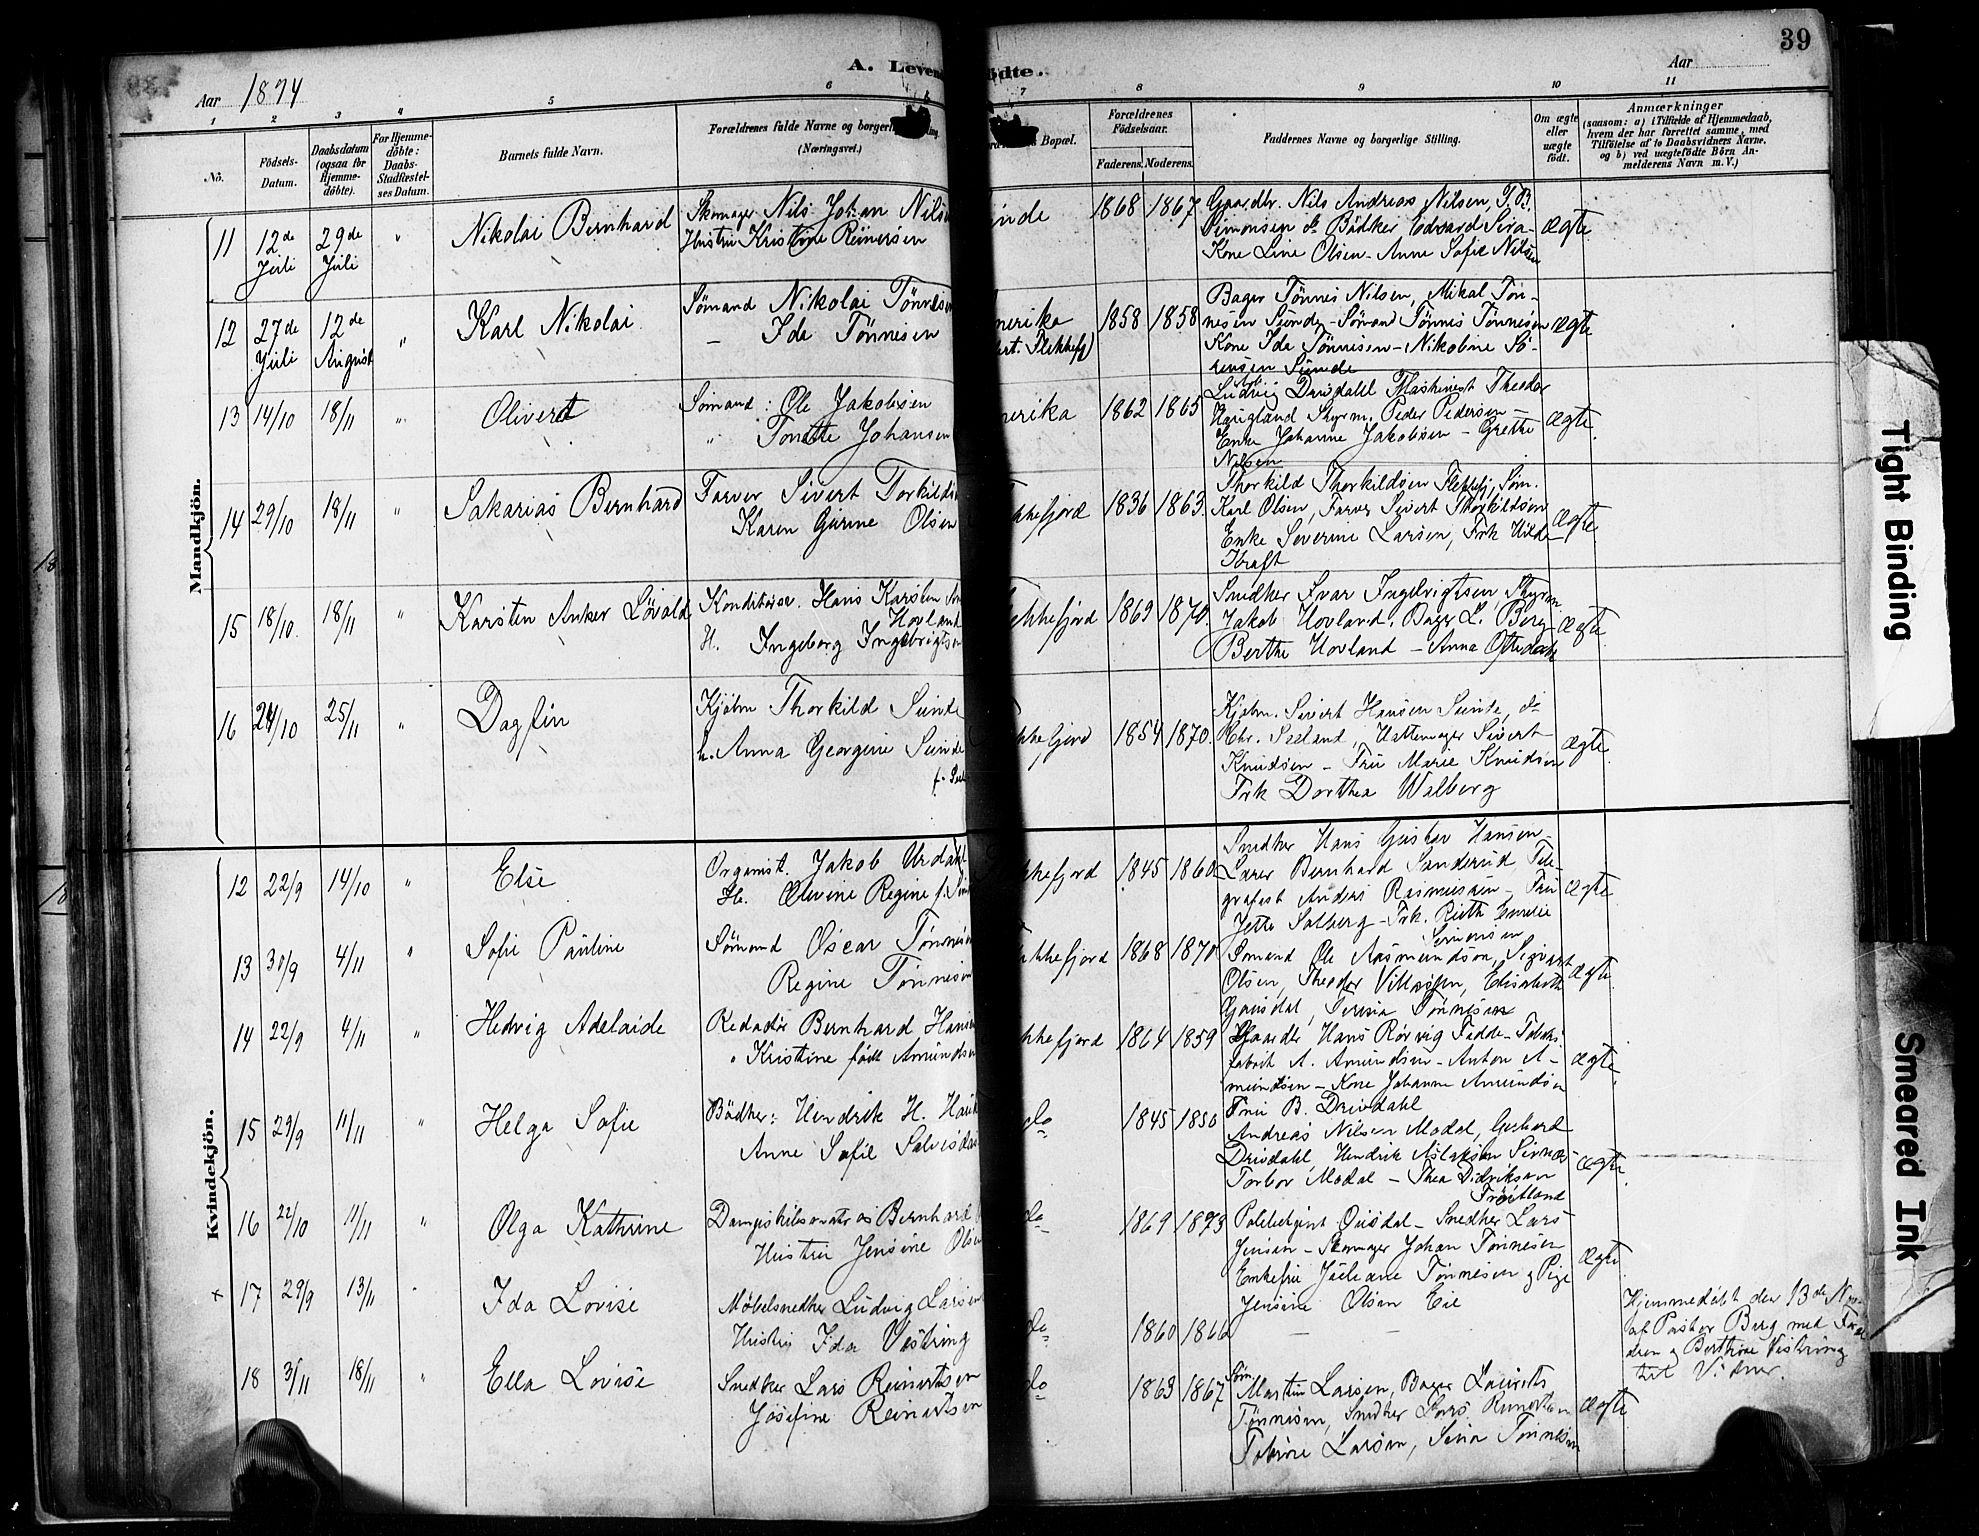 39
A. Leven ødte.
Aar 1894
Aar
1 2 3 4 5 6 7 8 9 10 11
No.
Födsels-Datum.
Daabsdatum (ogsaa for Hjemme-döbte).
For Hjemme-döbte: Daabs-Stadfæstel-ses Datum.
Barnets fulde Navn.
Forældrenes fulde Navne og borgerli
(Næringsvei.)
Bopæl.
Forældrenes Födselsaar.
Faderens. Moderens.
Faddernes Navne og borgerlige Stilling.
Om ægte eller uægte födt.
Anmærkninger
(saasom: a) i Tilfælde af Hjemmedaab, hvem der har forrettet samme, med Tilföielse af to Daabsvidners Navne, og b) ved uægtefödte Börn An-melderens Navn m.V.)
Mandkjön.
11 12de Juli 29de Juli " Nikolai Bernhard
Skomager Nils Johan Nils
Hustru Kristine Reinersen
unde 1868 1867
Gaardbr. Nils Andreas Nilsen, T. B.
Simonsen do Bødker Edvard Sira-
Kone Line Olsen - Anne Sofie Nilsen
Ægte
12 27de Juli 12de August " Karl Nikolai
Sømand Nikolai Tønnesen
- Ida Tønnesen
merika 1858 1858
Bager Tønnes Nilsen, Mikal Tøn-
nesen Sunde - Sømand Tønnes Tønnesen
Kone Ida Tønnesen - Nikoline Sö-
rensen Sunde
Ægte
13 14/10 18/11 " Olivert
Sømand: Ole Jakobsen
" Tonette Johansen
merika 1862 1865
Ludvig Drivdahl Maskinist Theodor
Haugland Styrm. Peder Pedersen -
Enke Johanne Jakobsen - Grethe
Nilsen
Ægte.
14 29/10 18/11 " Sakarias Bernhard
Farver Sivert Torkilds
Karen Gurine Olsen
kkefjord 1836 1863.
Thorkild Thorkildsen Flekkefj, Söm.
Karl Olsen, Farver Sivert Thorkildsen
Enke Severine Larsen, Frk Hilda
Kraft
Ægte
15 18/10. 18/11 " Karsten Anker Lövald
Konditorsv. Hans Karsten
Hovland
H. Ingeborg Ingebrigtsen
ekkefjord 1869 1870.
Snedker Ivar Ingebrigtsen, Styrm.
Jakob Hovland. Bager L. Berg -
Berthe Hovland - Anna Oftedahl
Ægte.
16 24/10 25/11 " Dagfin
Kjöbm Thorkild Sunde
h. Anna Georgine Sunde
kkefjord 1854 1870.
Kjöbm. Sivert Hansen Sunde, do
Chr. Seland, Hattemager Sivert
Knudsen - Fru Marie Knudsen
Frk Dorthea Walberg
Ægte.
Kvindekjön.
12 22/9 14/10 " Else
Organist. Jakob Urdahl
H. Olevine Regine f.
kkefjord 1845 1860
Snedker Hans Gustav Hansen -
Lærer Bernhard Sanderud, Tele-
grafist Anders Rasmussen - Fru
Jette Salberg - Frk. Ruth Emelie
Simonsen
Ægte
13 30/9 4/11 " Sofie Pauline
Sømand Oscar Tønnesen
Regine Tønnesen
ekkefjord 1868 1870
Sømand Ole Aasmundsen, Sigvart
Olsen, Theodor Villassen, Elisabeth
Gausdal, Teresia Tønnesen
Ægte.
14 22/9 4/11 " Hedvig Adelaide
Redaktør Bernhard Hansen
" Kristine født Amundsen
kkefjord 1864 1859
Gaardbr Hans Rørvig Fedde - Tobaks-
fabrik A. Amundsen - Anton A-
mundsen - Kone Johanne Amundsen
Fru B. Drivdahl
Ægte.
15 29/9 11/11 " Helga Sofie
Bødker: Hendrik H. Hau
Anne Sofie Salvesdatt
do 1845 1850
Andreas Nilsen Modal, Gerhard
Drivdahl, Hendrik Aslaksen Sirnes-
Torbor Modal - Thea Didriksen
Trøitland
Ægte.
16 22/10 11/11 " Olga Kathrine
Bernhard
Hustru Jensine Olsen
do 1869 1873
Politibetjent Ousdal - Snedker Lars
Jensen - Skomager Johan Tønnesen
Enkefru Juliane Tønnesen og Pige
Jensine Olsen Eie
Ægte
x 17 29/9 13/11 " Ida Lovise
Møbelsnedker Ludvig Larsen
Hustru Ida Vestring
do 1860 1866
- - -
Hjemmedöbt den 13de Nov
af Pastor Berg med Fade
ren og Berthine Vestring
til Vidner.
18 3/11 18/11 " Ella Lovise
Snedker Lars Reinertsen
Josefine Reinertsen
do 1863 1867
Söm. Martin Larsen, Bager Laurits
Tönnesen, Snedker Lars Reinertsen
Tobine Larsen, Sina Tönnesen
Ægte
Tight Binding
Smeared Ink